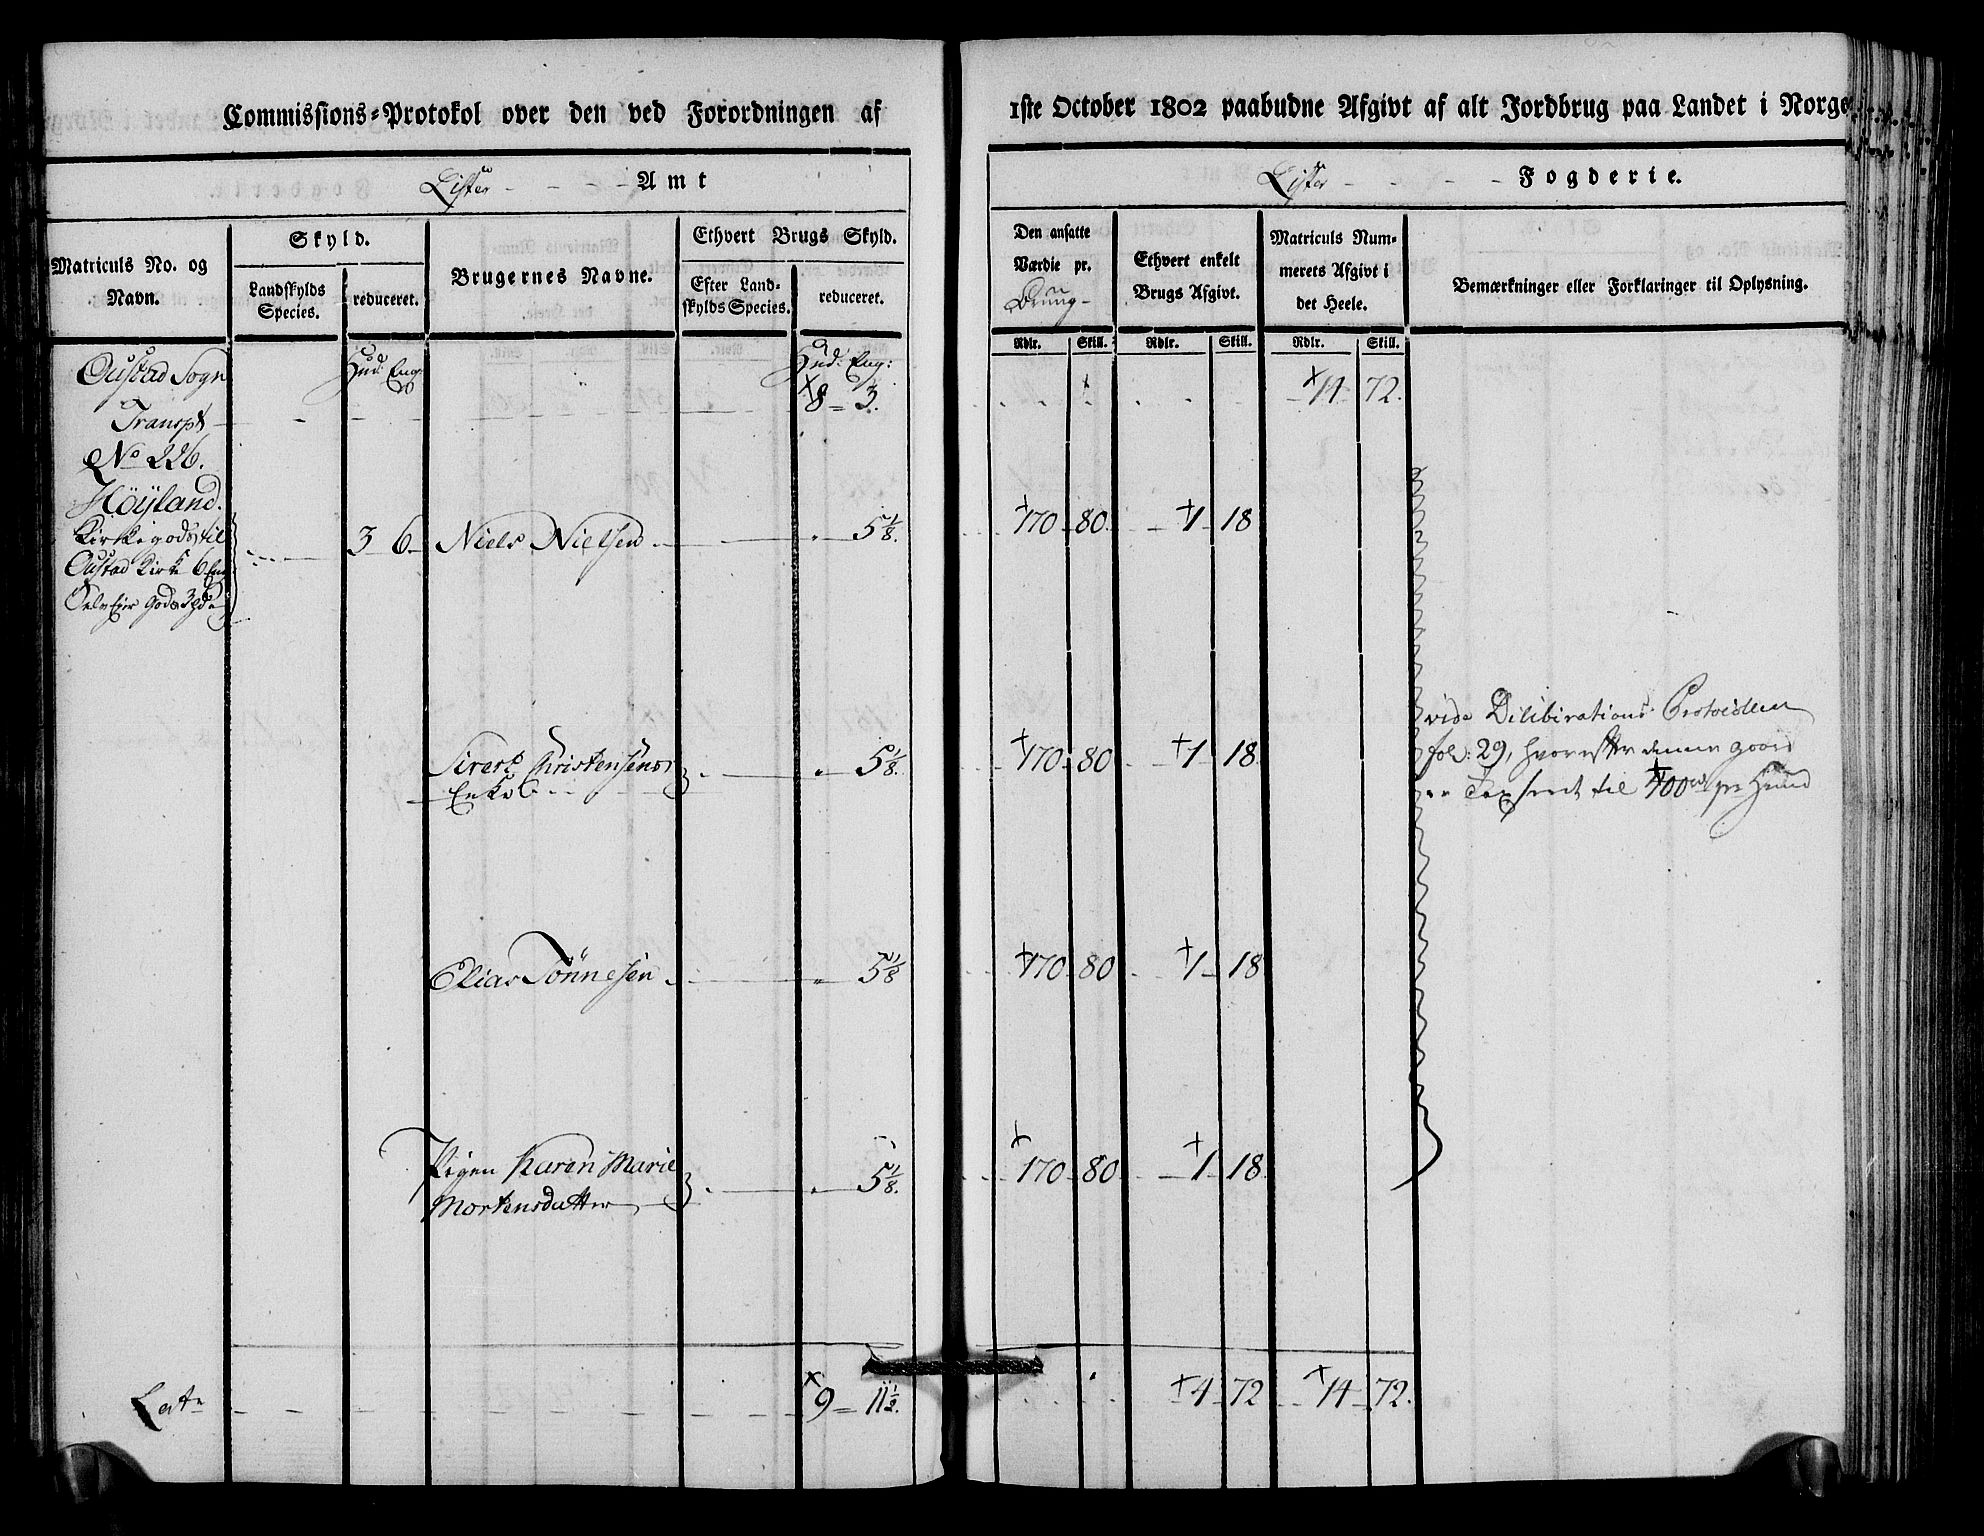 Commissions-Protokol over den ved Forordningen af
1ste October 1802 paabudne Afgivt af alt Jordbrug paa Landet i Norge
Lister - - - Amt
Lister - - - Fogderie.
Matriculs No. og Navn.
Skyld.
Landskylds Species.
reduceret.
Brugernes Navne.
Ethvert Brugs Skyld.
Efter Landskylds Species.
reduceret.
Den ansatte Værdie pr.
Brug
Ethvert enkelt Brugs Afgivt.
Matriculs Nummerets Afgivt i det Heele.
Bemærkninger eller Forklaringer til Oplysning.
Rdlr. Skill. Rdlr. Skill. Rdlr. Skill.
Oustad Sogn Hud: Eng: Hud: Eng:
Transpt 8 - 3. 14 - 72.
No 226.
Höyland.
Kirkegods til 3 6 Niels Nielsen 5 1/8. 170 - 80. 1 - 18
Oustad Kirke 6 Eng
Selveier Gods 3
Sivert Christensens 5 1/8. 170 - 80 1 - 18.
Enke
vide Deliberations Protocollen
fol: 29, hvorefter denne gaard
er Taxseret til 400 rd pr Huud
Elias Tönnesen 5 1/8 170 - 80 1 - 18
Pigen Karen Marie 5 1/8. 170 - 80 1 - 18.
Mortensdatter
Lat. 9 - 11 1/2. 4 72 14 - 72.